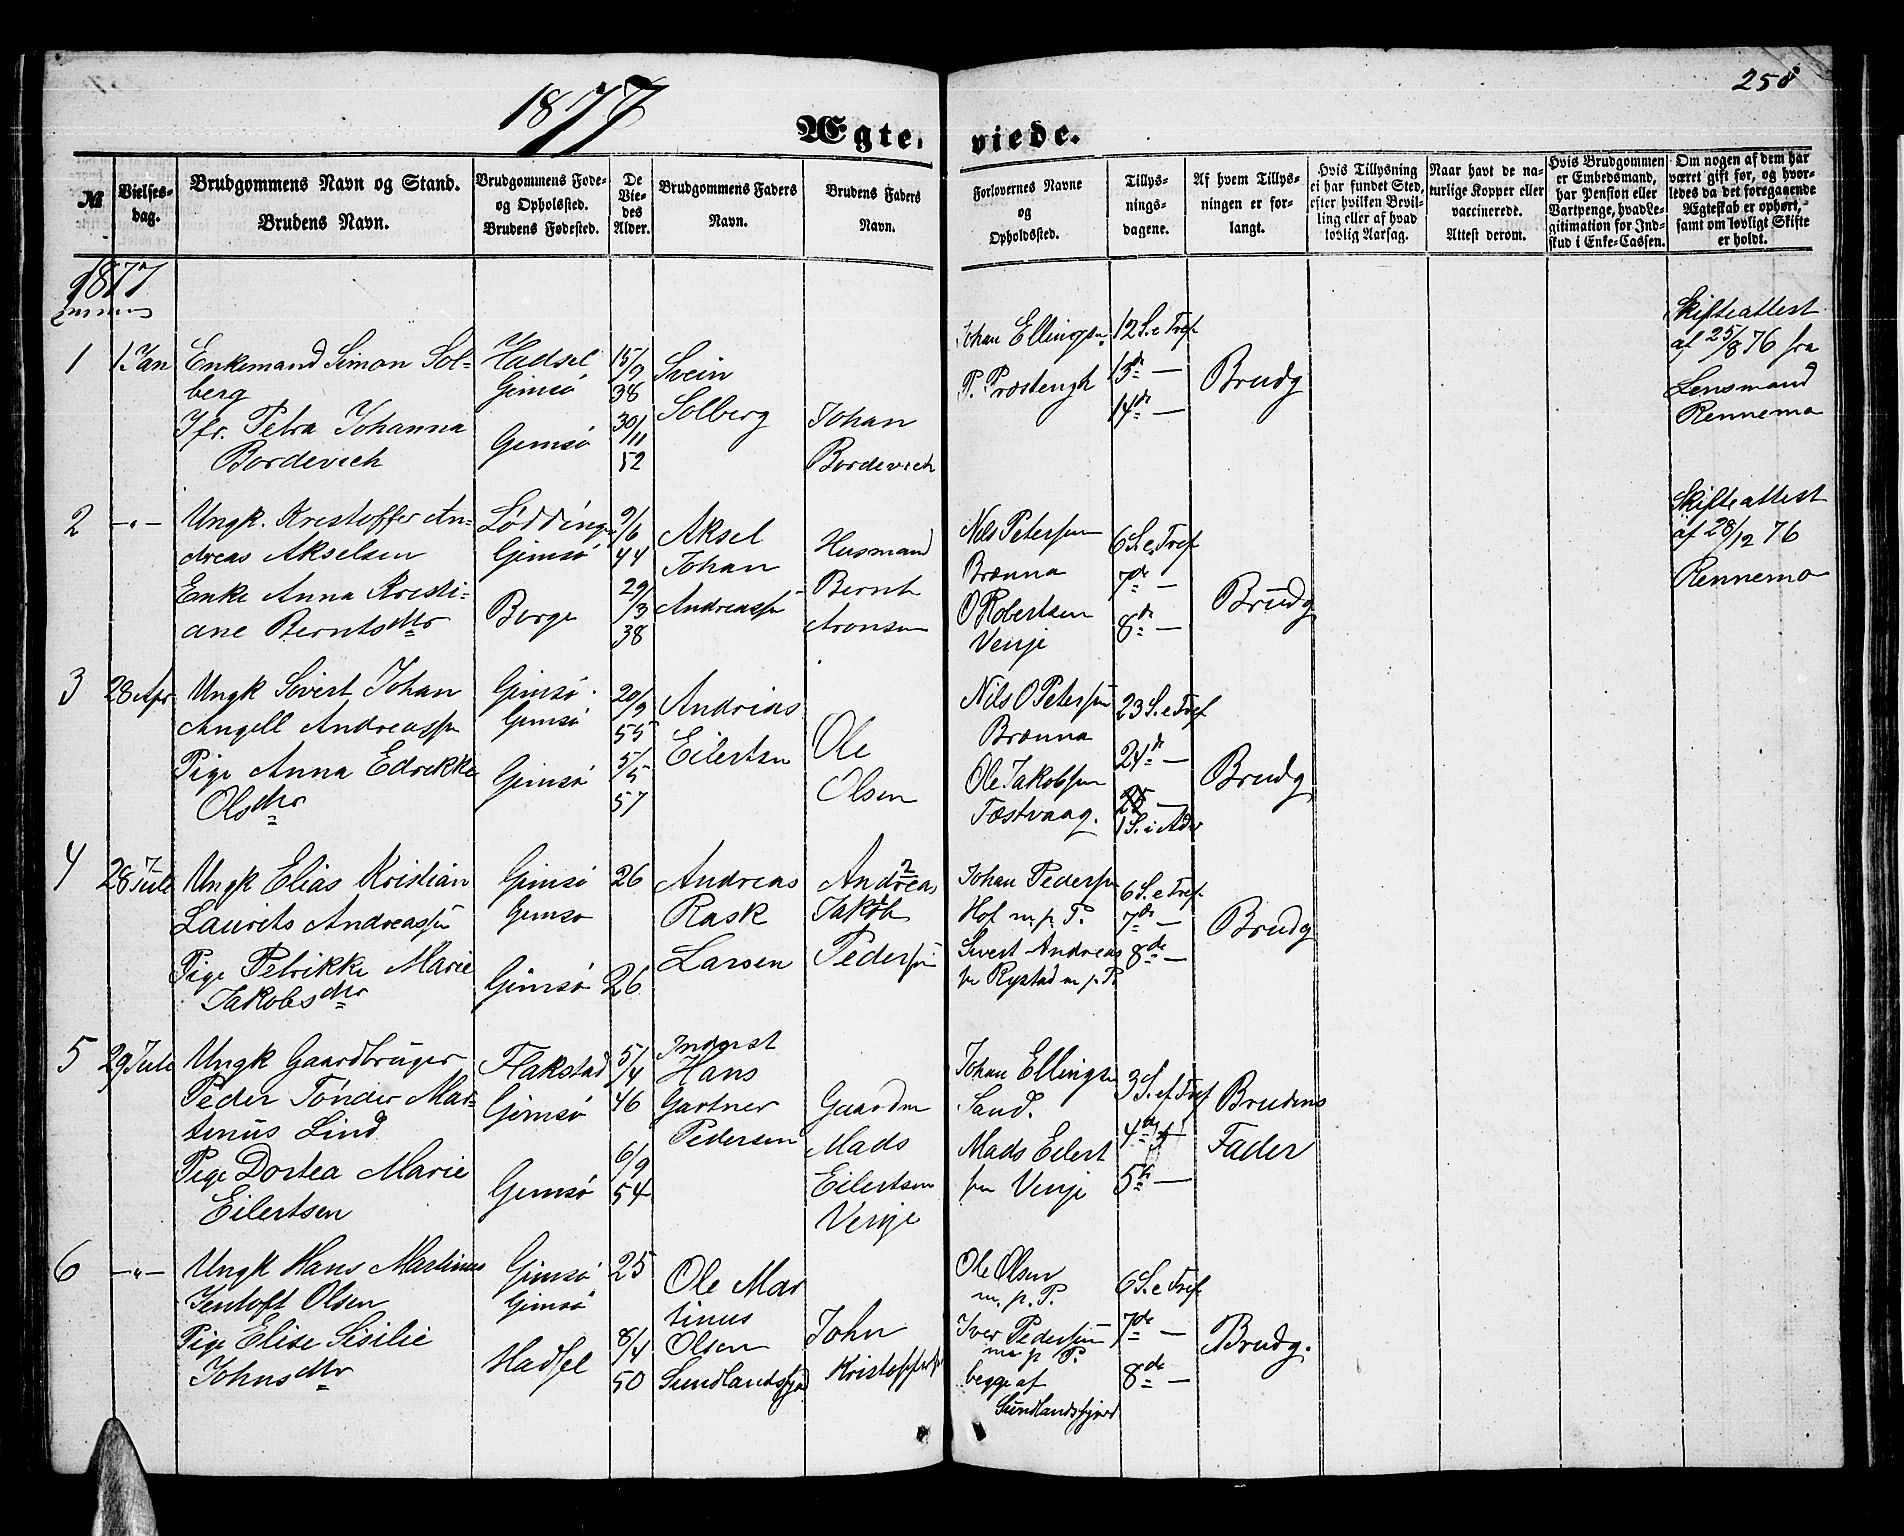 258
1877
Ægte-viede.
№
Vielses-
dag.
Brudgommens Navn og Stand.
Brudens Navn.
Brudgommens Føde-
og Opholdsted.
Brudens Fødested.
De
Vie-
des
Alder.
Brudgommens Faders
Navn.
Brudens Faders
Navn.
Forlovernes Navne
og
Opholdssted.
Tillys-
nings-
dagene.
Af hvem Tillys-
ningen er for-
langt.
Hvis Tillysning
ei har fundet Sted,
efter hvilken Bevil-
ling eller af hvad
lovlig Aarsag.
Naar havt de na-
turlige Kopper eller
vaccinerede.
Attest derom.
Hvis Brudgommen
er Embedsmand,
har Pension eller
Vartpenge, hvad Le-
gitimation for Ind-
skud i Enke-Cassen.
Om nogen af dem har
været gift før, og hvor-
ledes da det foregaaende
Ægteskab er ophørt,
samt om lovligt Skifte
er holdt.
1877
1
1 Jan
Enkemand Simon Sol-
berg
Jfr. Petra Johanna
Bordevich
Hadsel
Gimsø
Gimsø
15/9
38
30/11
52
Svein
Solberg
Johan
Bordevich
Johan Ellingsen
P. Præstengh
12 S. e Tref
13de —
14de —
Brudg
Skifteattest
af 25/8 76 fra
Lensmand
Rennemo
2
—"—
Ungk. Kristoffer An-
dreas Akselsen
Enke Anna Kristi-
ane Berntsdtr
Lødding
Gimsø
Borge
9/6
44
29/3
38
Aksel
Johan
Andreassen
Husmand
Bernt
Aronsen
Nils Petersen
Brænna
O Robertsen
Venje
6 S. e. Tref
7de —
8de —
Brudg
Skifteattest
af 28/12 76
Rennemo
3
28 Apr
Ungk Sivert Johan
Angell Andreassen
Pige Anna Edrikke
Olsdtr
Gimsø
Gimsø
Gimsø
20/9
55
5/5
57
Andreas
Eilertsen
Ole
Olsen
Nils O Petersen
Brænna
Ole Jakobsen
Tæstvaag.
23 S. e Tref
24de —
25 —
1 S. i Adv
Brudg
4
28 Juli
Ungk Elias Kristian
Laurits Andreassen
Pige Petrikke Marie
Jakobsdtr
Gimsø
Gimsø
Gimsø
26
26
Andreas
Rask
Larsen
Andreas
Jakob
Pedersen
Johan Pedersen
Hof m. p. P.
Sivert Andreas
sen Rystad m. p. P.
6 S. e Tref
7de —
8de —
Brudg
5
29 Juli
Ungk Gaardbruger
Peder Tønder Mar-
tinus Lind
Pige Dortea Marie
Eilertsen
Flakstad
Gimsø
Gimsø
5/4
46
6/9
54
Inderst
Hans
Gartner
Pedersen
Gaardm
Mads
Eilertsen
Venje
Johan Ellingsen
Sand.
Mads Eilert
sen Venje
3 S. ef Tref
4de
5te —
Brudens
Fader
6
—"—
Ungk Hans Martinus
Jentoft Olsen
Pige Elise Sisilie
Johnsdtr
Gimsø
Gimsø
Hadsel
25
8/4
50
Ole Mar
tinus
Olsen
Sundlandsfjord
John
Kristoffersen
Ole Olsen
m. p. P.
Iver Pedersen
m. p. P.
begge af
Sundlandsfjord
6 S. e Tref
7de —
8de —
Brudg.